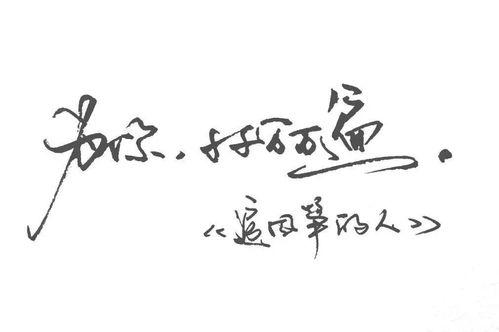 为你，千千万万遍。
《追风筝的人》